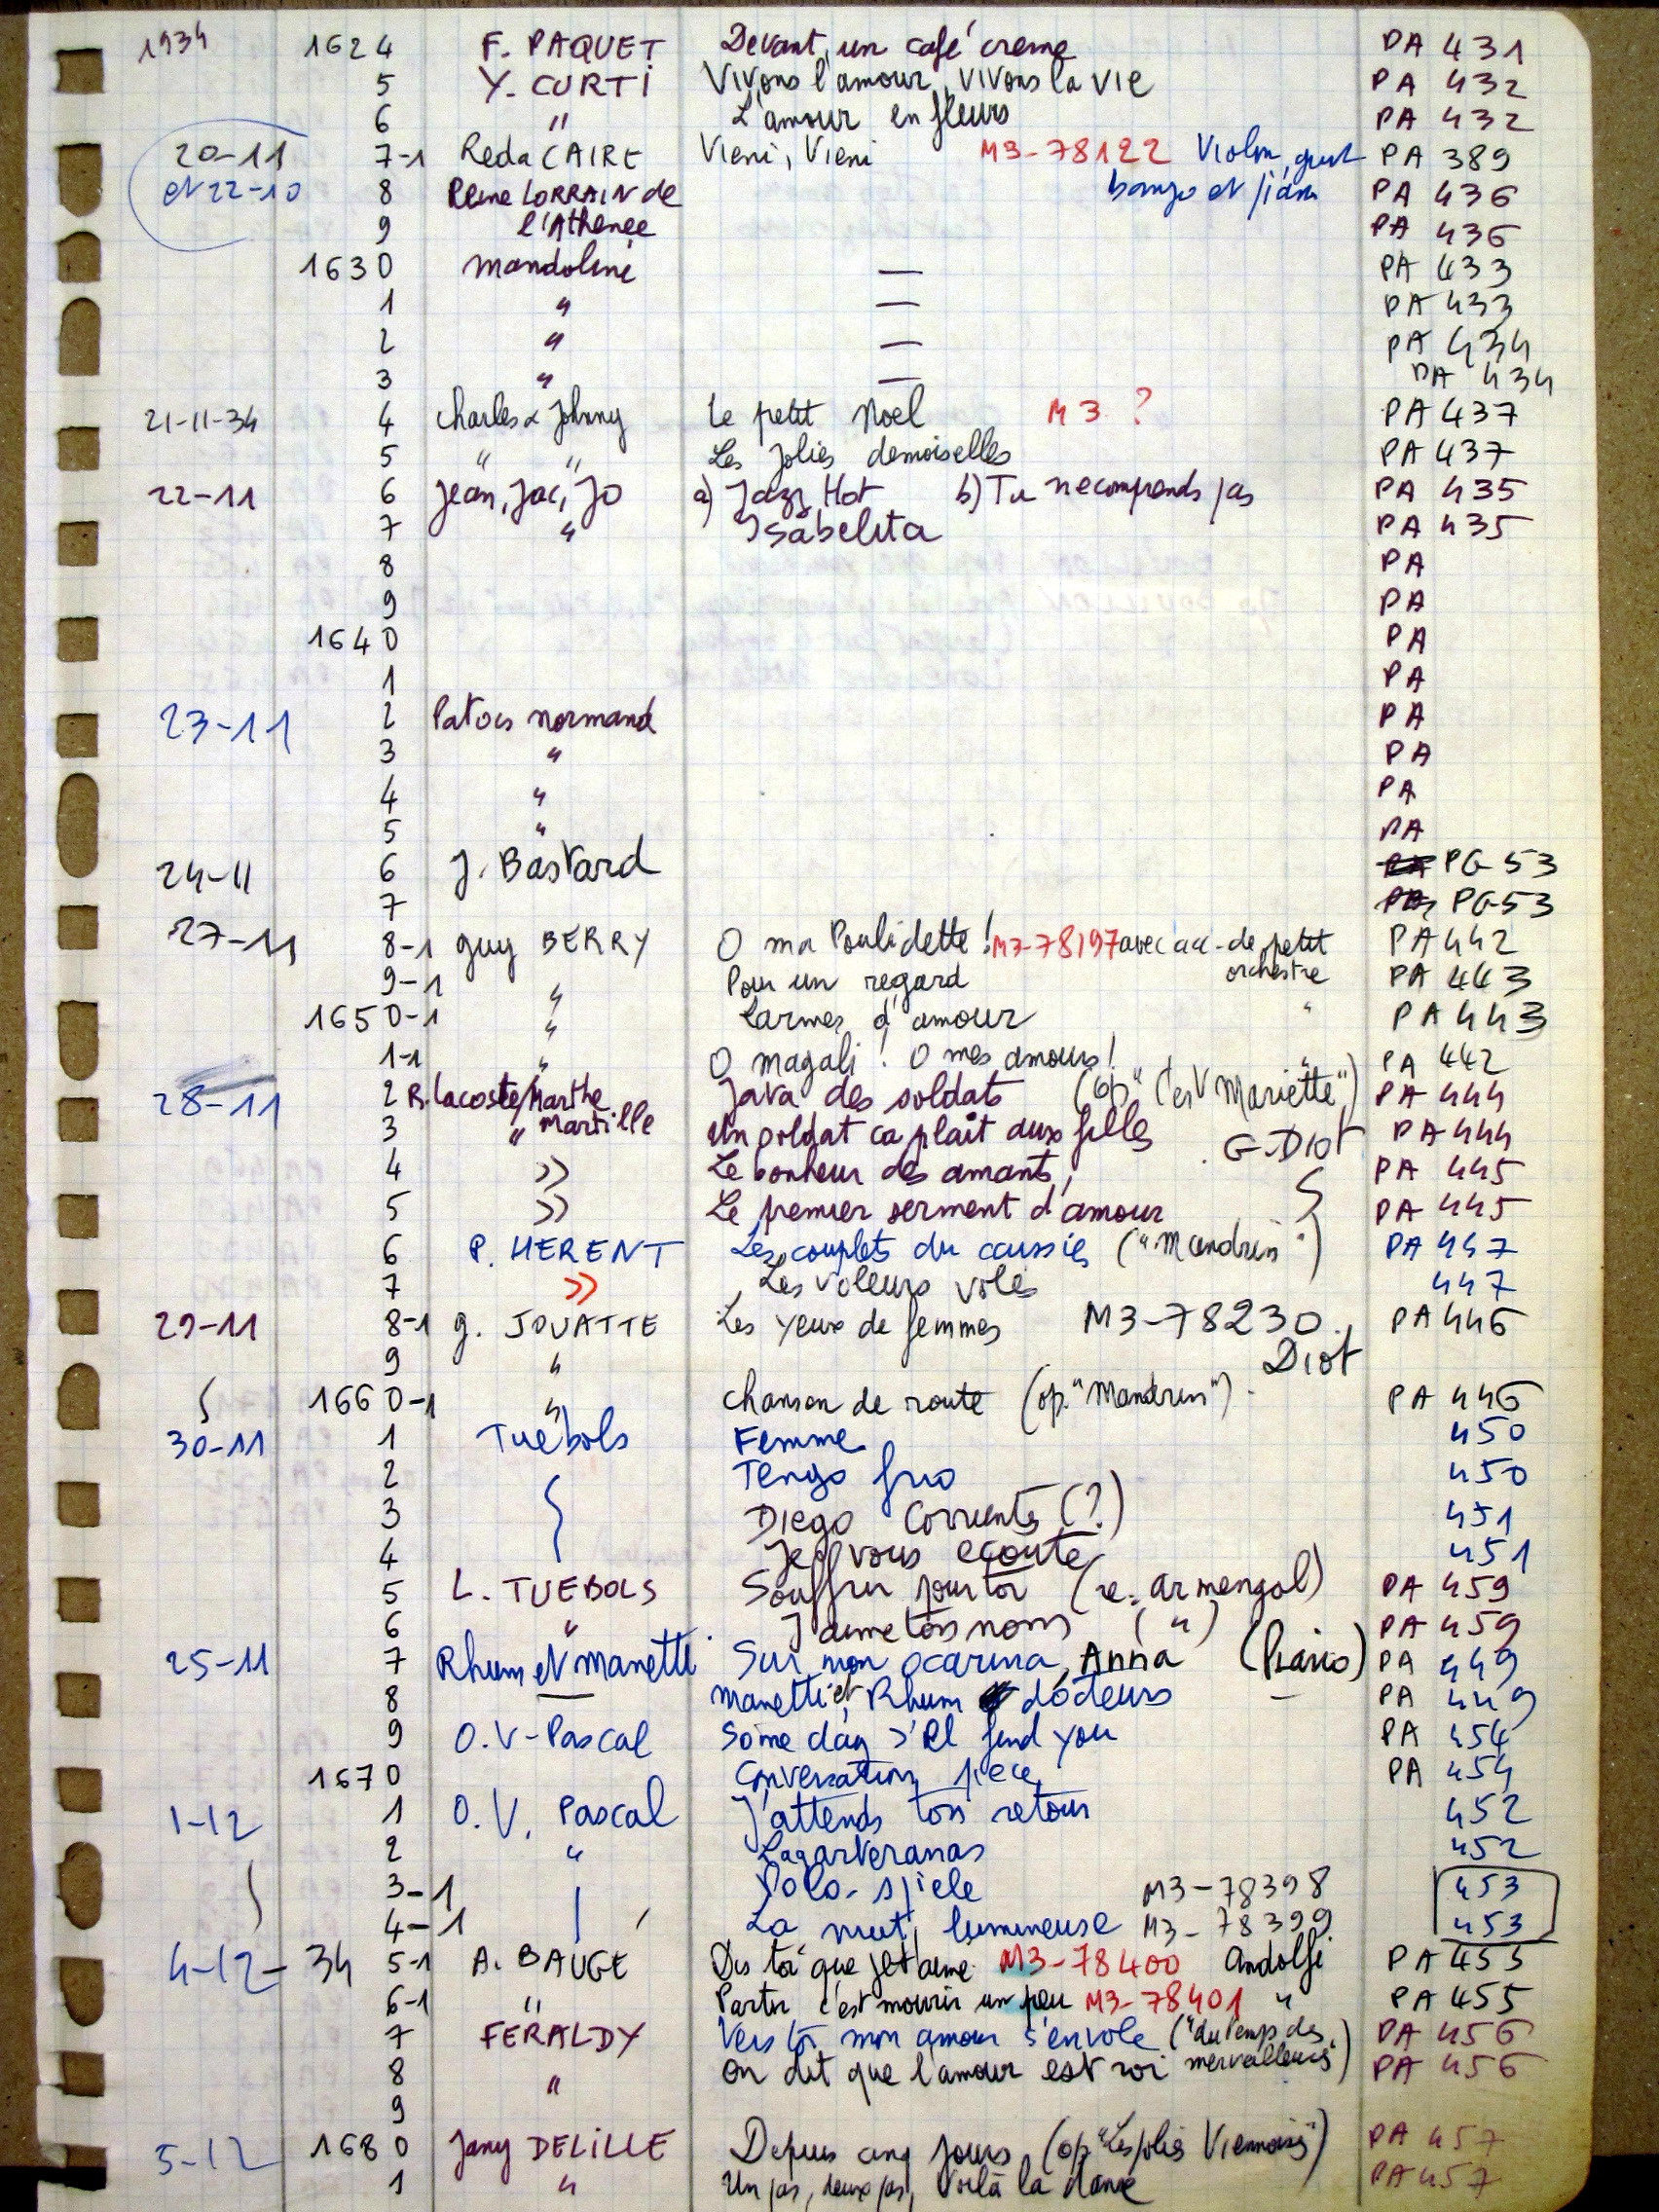 1934 1624 F. PAQUET Devant un café crème PA 431
5 Y. CURTI Vivons l'amour, vivons la vie PA 432
6 " L'amour en fleurs PA 432
20-11 7-1 Reda CAIRE Vieni, Vieni M3-78122 Violon, guit PA 389
et 22-10 8 Reine LORRAIN de banjo et piano PA 436
9 l'Athenée PA 436
1630 mandoline — PA 433
1 " — PA 433
2 " — PA 434
3 " — PA 434
21-11-34 4 Charles & Johnny Le petit Noel M3 ? PA 437
5 " " Les jolies demoiselles PA 437
22-11 6 Jean, Jac, Jo a) Jazz Hot b) Tu ne comprends pas PA 435
7 " Isabelita PA 435
8 PA
9 PA
1640 PA
1 PA
23-11 2 Patois normand PA
3 " PA
4 " PA
5 " PA
24-11 6 J. Bastard PG 53
7 PG 53
27-11 8-1 guy BERRY O ma Poulidette ! M3-78197 avec acc-de petit PA 442
9-1 " Pour un regard orchestre PA 443
1650-1 " Larmes d'amour " PA 443
1-1 " O magali ! O mes amours ! " PA 442
28-11 2 R. Lacoste/Marthe Java des soldats (op "C'est Mariette") PA 444
3 " Martille Un soldat ca plait aux filles G-Diot PA 444
4 » Le bonheur des amants PA 445
5 » Le premier serment d'amour PA 445
6 P. HERENT Les couplets du caissie ("Mandrin") PA 447
7 » Les voleurs volés 447
29-11 8-1 g. JOUATTE Les yeux de femmes M3-78230 PA 446
9 " Diot
1660-1 " Chanson de route (op. "Mandrin") PA 446
30-11 1 Tuebols Femme 450
2 Tengo frio 450
3 Diego Corrientes (?) 451
4 Je vous écoute 451
5 L. TUEBOLS Souffrir pour toi (e. armengol) PA 459
6 " J'aime ton nom (") PA 459
25-11 7 Rhum et Manetti Sur mon ocarina, Anna (Piano) PA 449
8 Manetti et Rhum docteurs PA 449
9 O.V-Pascal Some day I'll find you PA 454
1670 Conversation piece PA 454
1-12 1 O.V. Pascal J'attends ton retour 452
2 " Lagarteranas 452
3-1 Yoyo-spiele M3-78398 453
4-1 La nuit lumineuse M3-78399 453
4-12-34 5-1 A. BAUGE Dis toi que je t'aime M3-78400 Andolfi PA 455
6-1 " Partir c'est mourir un peu M3-78401 " PA 455
7 FERALDY Vers toi mon amour s'envole ("du temps des PA 456
8 " On dit que l'amour est roi merveilleuses") PA 456
9
5-12 1680 Jany DELILLE Depuis cinq jours (op "Les jolies Viennoises") PA 457
1 " Un pas, deux pas, voilà la danse PA 457